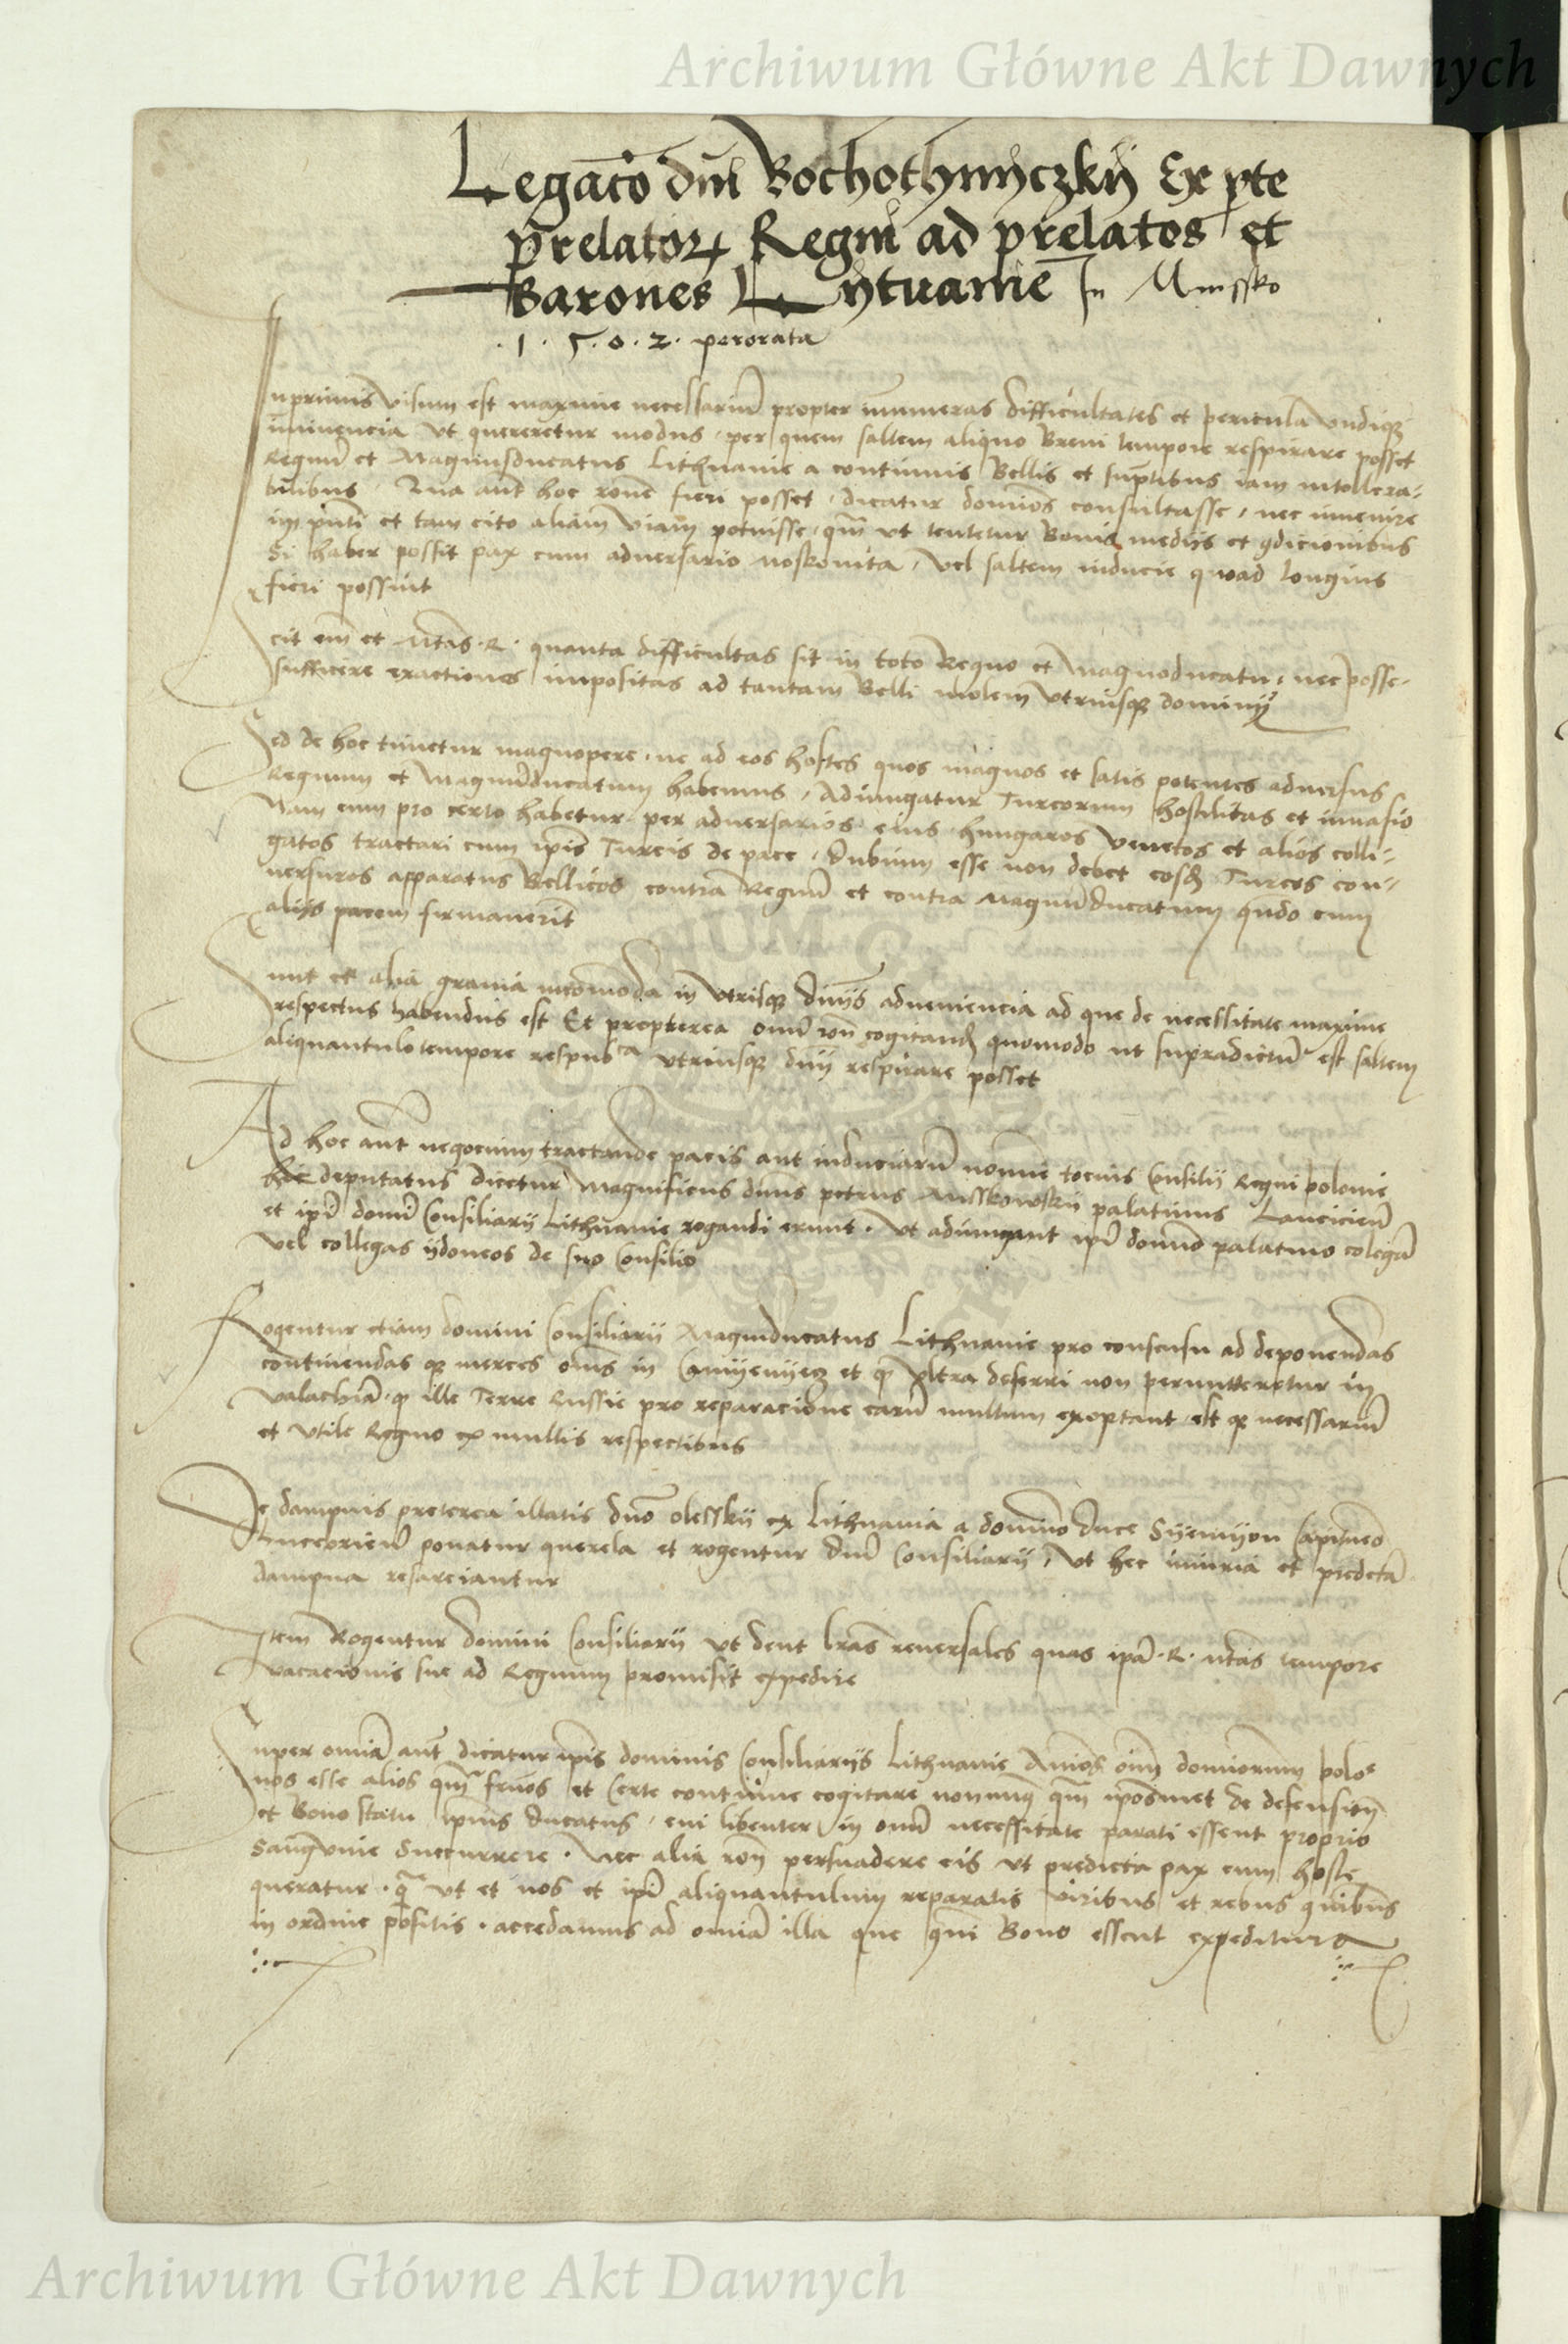 Archiwum Główne Akt Dawnych
Legacō dnī Bochothnyczkÿ Ex pte
prelatoꝝ Regni ad prelatos et
Barones Lÿtuanie In Mynssko
.1.5.0.2. perorata
Inprimis visum est maxime necessariū propter innumeras difficultates et pericula vndiqꝫ
iminencia vt quereretur modus, per quem saltem aliquo Breui tempore respirare posset
Regnū et Magnusducatus Lithuanie a continuis Bellis et sūptibus iam intollera-
bilibus. Qua aūt hoc rōne fieri posset, dicatur dominos consultasse, nec inuenire
in pn̄ti et tam cito aliam viam potuisse, qm̄ vt tentetur Bonis medijs et ꝯdicionibus
Si haber possit pax cum aduersario Moskouita, vel saltem inducie quoad longius
fieri possint
Scit em̄ et Mtas. R. quanta difficultas sit in toto Regno et Magnoducatu, nec posse
sufficere exactiones impositas ad tantam Belli molem vtriusqꝫ dominij
Sed de hoc timetur magnopere, ne ad eos hostes quos magnos et satis potentes aduersus
Regnum et Magnūducatum habemus, Adiungatur Turcorum hostilitas et inuasio
Nam cum pro certo habetur per aduersarios eius hungaros venetos et alios colli-
gatos tractari cum ipis Turcis de pace, Dubium esse non debet eosdē Turcos con-
uersuros apparatus Bellicos contra Regnū et contra Magnūducatum qn̄do cum
alijs pacem firmauerīt
Sunt et alia grauia incomoda in vtrisqꝫ dnijs aduenientia ad que de necessitate maxime
respectus habendus est Et propterea omni rōn cogitandū quomodo vt supradictū est saltem
aliquantulo tempore respubca vtriusqꝫ dnij respirare posset
Ad hoc aūt negocium tractande pacis aut induciarū nomine tocius Consilij Regni polonie
hic deputatus dicetur Magnificus dn̄s petrus Misskowskij palatinus Lanciciēn
et ipi domi Consiliarij Lithuanie rogandi erunt. Vt adiungant ipi domino palatino colegā
vel collegas ydoneos de suo Consilio
Rogentur etiam domini Consiliarij Magniducatus Lithuanie pro consensu ad deponendas
continendas qꝫ merces om̄s in Camyenyecz et qꝫ vltra deferri non permitteretur in
Valachiā. qꝫ ille Terre Russie pro reparacione earū multum exoptant est qꝫ necessariū
et vtile Regno ex multis respectibus
De dampnis preterea illatis dn̄o olesskij ex Lithuania a domino duce Syemyon Capitaneo
Luceoriēn ponatur querela et rogentur dn̄i Consiliarij, vt hec iniuria et predcta
dampna resarciantur
Item Rogentur domini Consiliarij vt dent lr̄as reuersales quas ipā. R. Mtas tempore
vacacionis sue ad Regnum promisit expedire
Super omīa aūt dicatur ipis dominis Consiliarijs Lithuanie Animos oīm dominorum polo-
nos esse alios qm̄ fr̄nos et Certe continue cogitare non minus qm̄ ipos met de defensiōn
et Bono statu ipius ducatus, cui libenter in omī necessitate parati essent proprio
Sanguine Succurrere. Nec alia rōn persuadere eis vt predicta pax cum hoste
queratur. qꝫ vt et nos et ipi aliquantulum reparatis viribus et rebus quibus
in ordine positis. accedamus ad omīa illa que ꝯmi Bono essent expeditura
Archiwum Główne Akt Dawnych